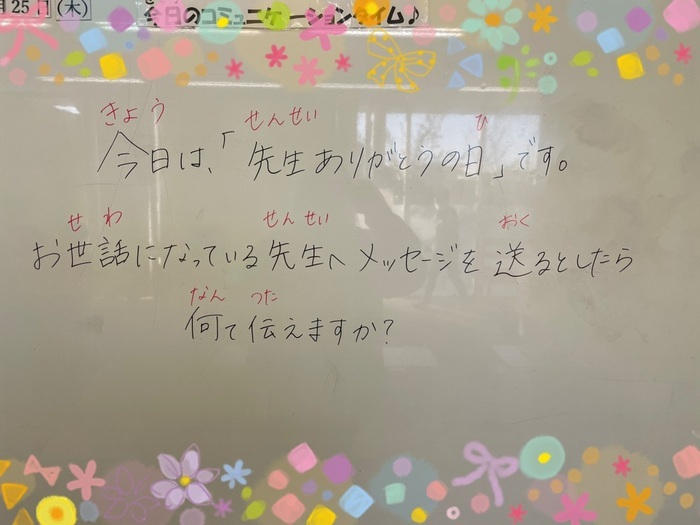 25日(木)
今日のコミュニケーションタイム♪
きょう せんせい ひ
今日は、「先生ありがとうの日」です。
せわ せんせい おく
お世話になっている先生へメッセージを送るとしたら
なん つた
何て伝えますか?